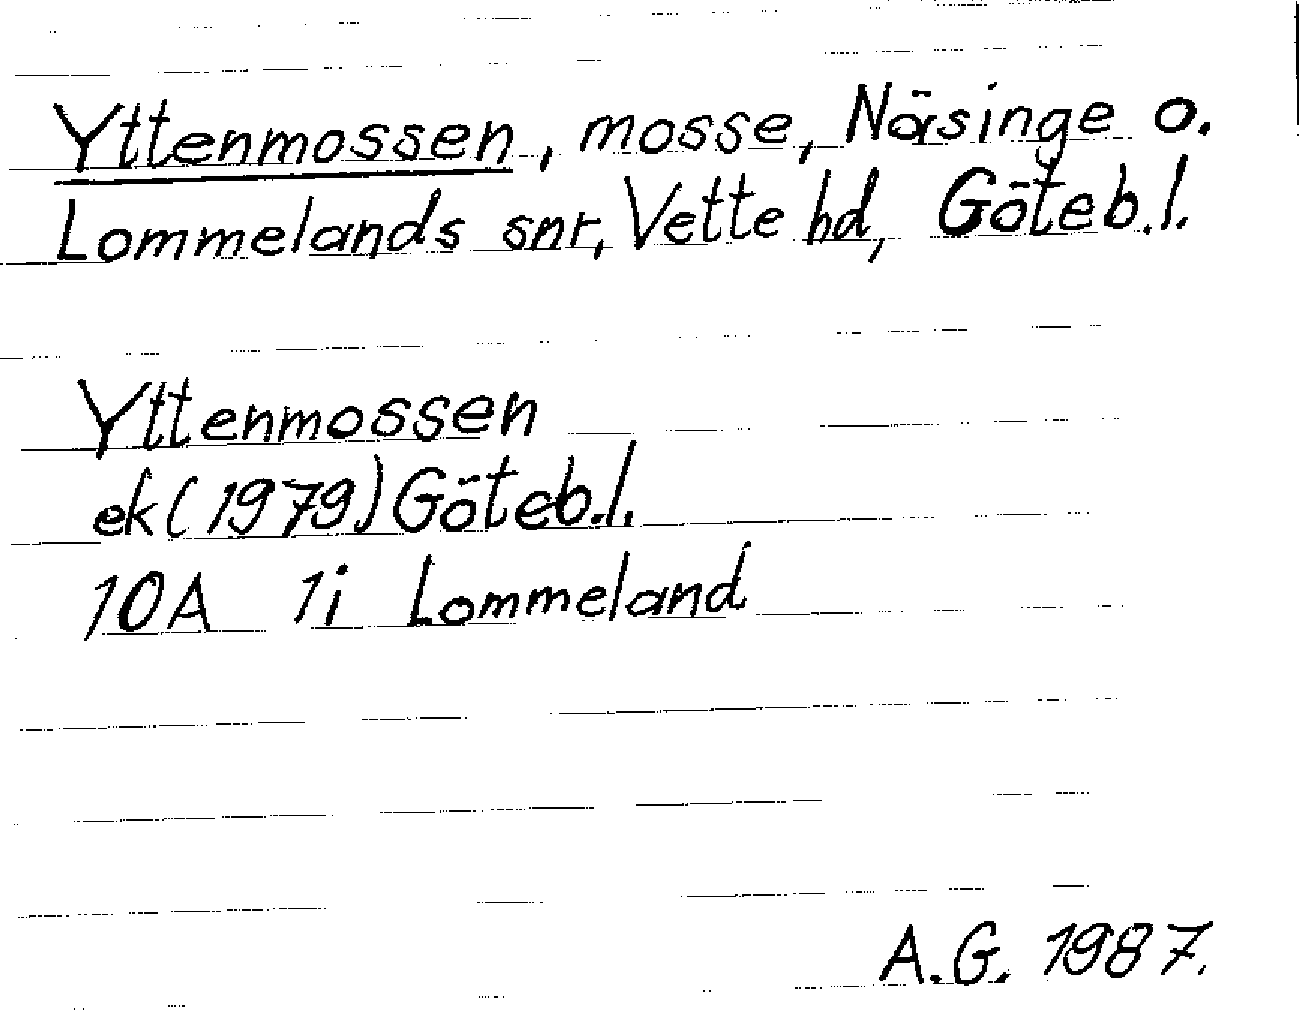 Yttenmossen, mosse, Näsinge o.
Lommelands snr, Vette hd, Göteb.l.
Yttenmossen
ek(1979)Göteb.l.
10A 1i Lommeland
A.G. 1987.